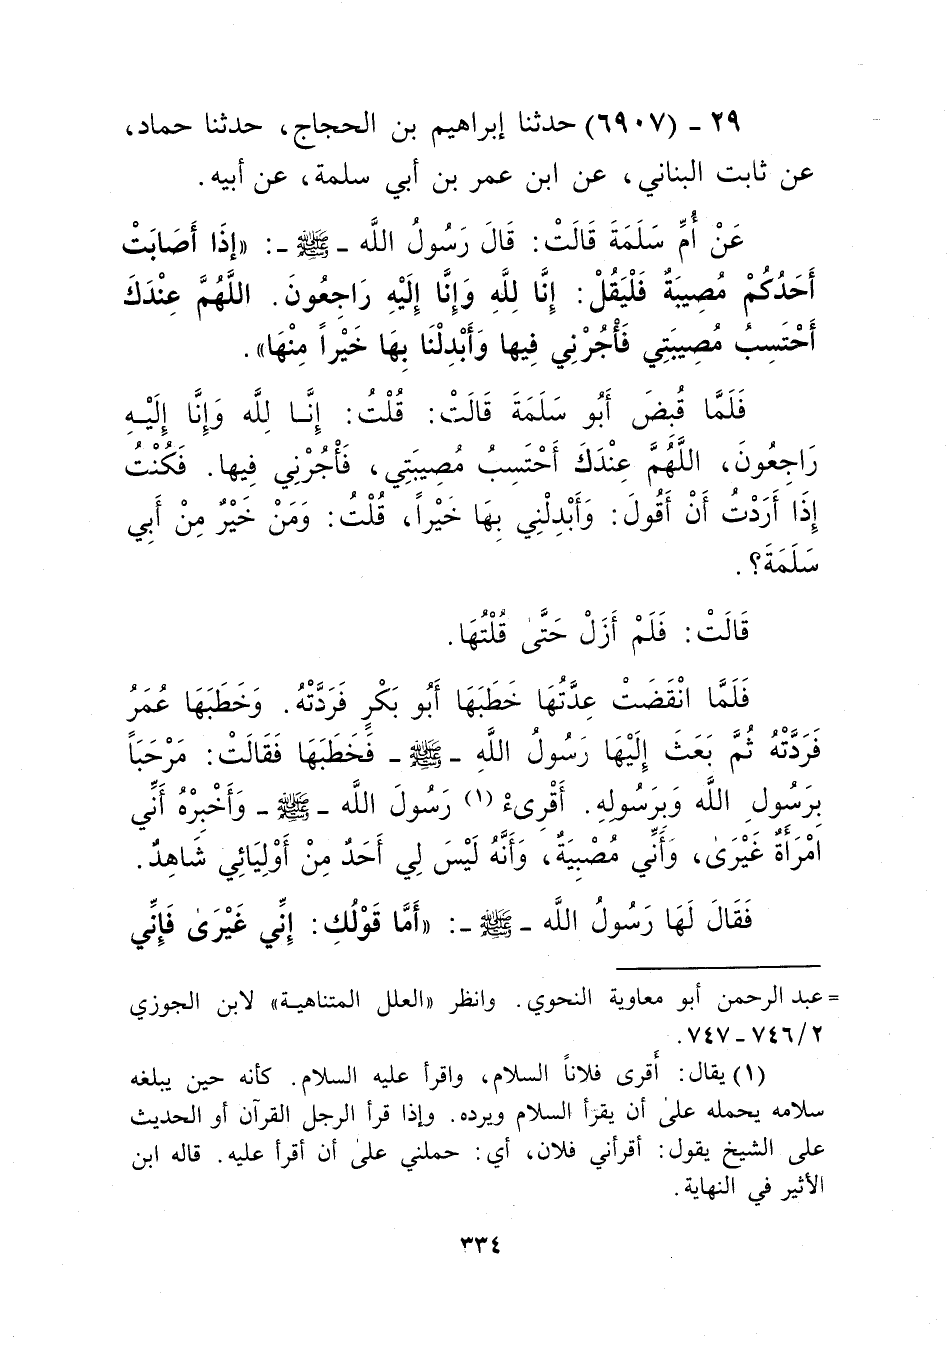 ٢٩ ـ (٦٩٠٧) حدثنا إبراهيم بن الحجاج، حدثنا حماد،
عن ثابت البناني، عن ابن عمر بن أبي سلمة، عن أبيه.
عَنْ أُمِّ سَلَمَةَ قَالَتْ: قَالَ رَسُولُ اللَّه ـ ﷺ ـ: «إذَا أَصَابَتْ
أَحَدُكُمْ مُصِيبَةٌ فَلْيَقُلْ: إِنَّا لِلَّهِ وَإِنَّا إِلَيْهِ رَاجِعُونَ. اللَّهُمَّ عِنْدَكَ
أَحْتَسِبُ مُصِيبَتِي فَأْجُرْنِي فِيها وَأَبْدِلْنَا بِهَا خَيْراً مِنْهَا».
فَلَمَّا قُبِضَ أَبُو سَلَمَةَ قَالَتْ: قُلْتُ: إِنَّا لِلَّه وَإِنَّا إِلَيْهِ
رَاجِعُونَ، اللَّهُمَّ عِنْدَكَ أَحْتَسِبُ مُصِيبَتِي، فَأْجُرْنِي فِيها. فَكُنْتُ
إِذَا أَرَدْتُ أَنْ أَقُولَ: وَأَبْدِلْنِي بِهَا خَيْراً، قُلْتُ: وَمَنْ خَيْرٌ مِنْ أَبِي
سَلَمَةَ؟.
قَالَتْ: فَلَمْ أَزَلْ حَتَّىٰ قُلْتُهَا.
فَلَمَّا انْقَضَتْ عِدَّتُهَا خَطَبَهَا أَبُو بَكْرٍ فَرَدَّتْهُ. وَخَطَبَهَا عُمَرُ
فَرَدَّتْهُ ثُمَّ بَعَثَ إِلَيْهَا رَسُولُ اللَّهِ ـ ﷺ ـ فَخَطَبَهَا فَقَالَتْ: مَرْحَباً
بِرَسُولِ اللَّه وَبِرَسُولِهِ. أَقْرِىءْ (١) رَسُولَ اللَّه ـ ﷺ ـ وَأَخْبِرْهُ أَنِّي
امْرَأَةٌ غَيْرَىٰ، وَأَنِّي مُصْبِيَةٌ، وَأَنَّهُ لَيْسَ لِي أَحَدٌ مِنْ أَوْلِيَائِي شَاهِدٌ.
فَقَالَ لَهَا رَسُولُ اللَّه ـ ﷺ ـ: «أَمَّا قَوْلُكِ: إِنِّي غَيْرَىٰ فَإِنِّي
= عبد الرحمن أبو معاوية النحوي. وانظر «العلل المتناهية» لابن الجوزي
٢/ ٧٤٦ ـ ٧٤٧.
(١) يقال: أَقرى فلاناً السلام، واقرأ عليه السلام. كأنه حين يبلغه
سلامه يحمله علىٰ أن يقرأ السلام ويرده. وإذا قرأ الرجل القرآن أو الحديث
على الشيخ يقول: أقرأني فلان، أي: حملني علىٰ أن أقرأ عليه. قاله ابن
الأثير في النهاية.
٣٣٤